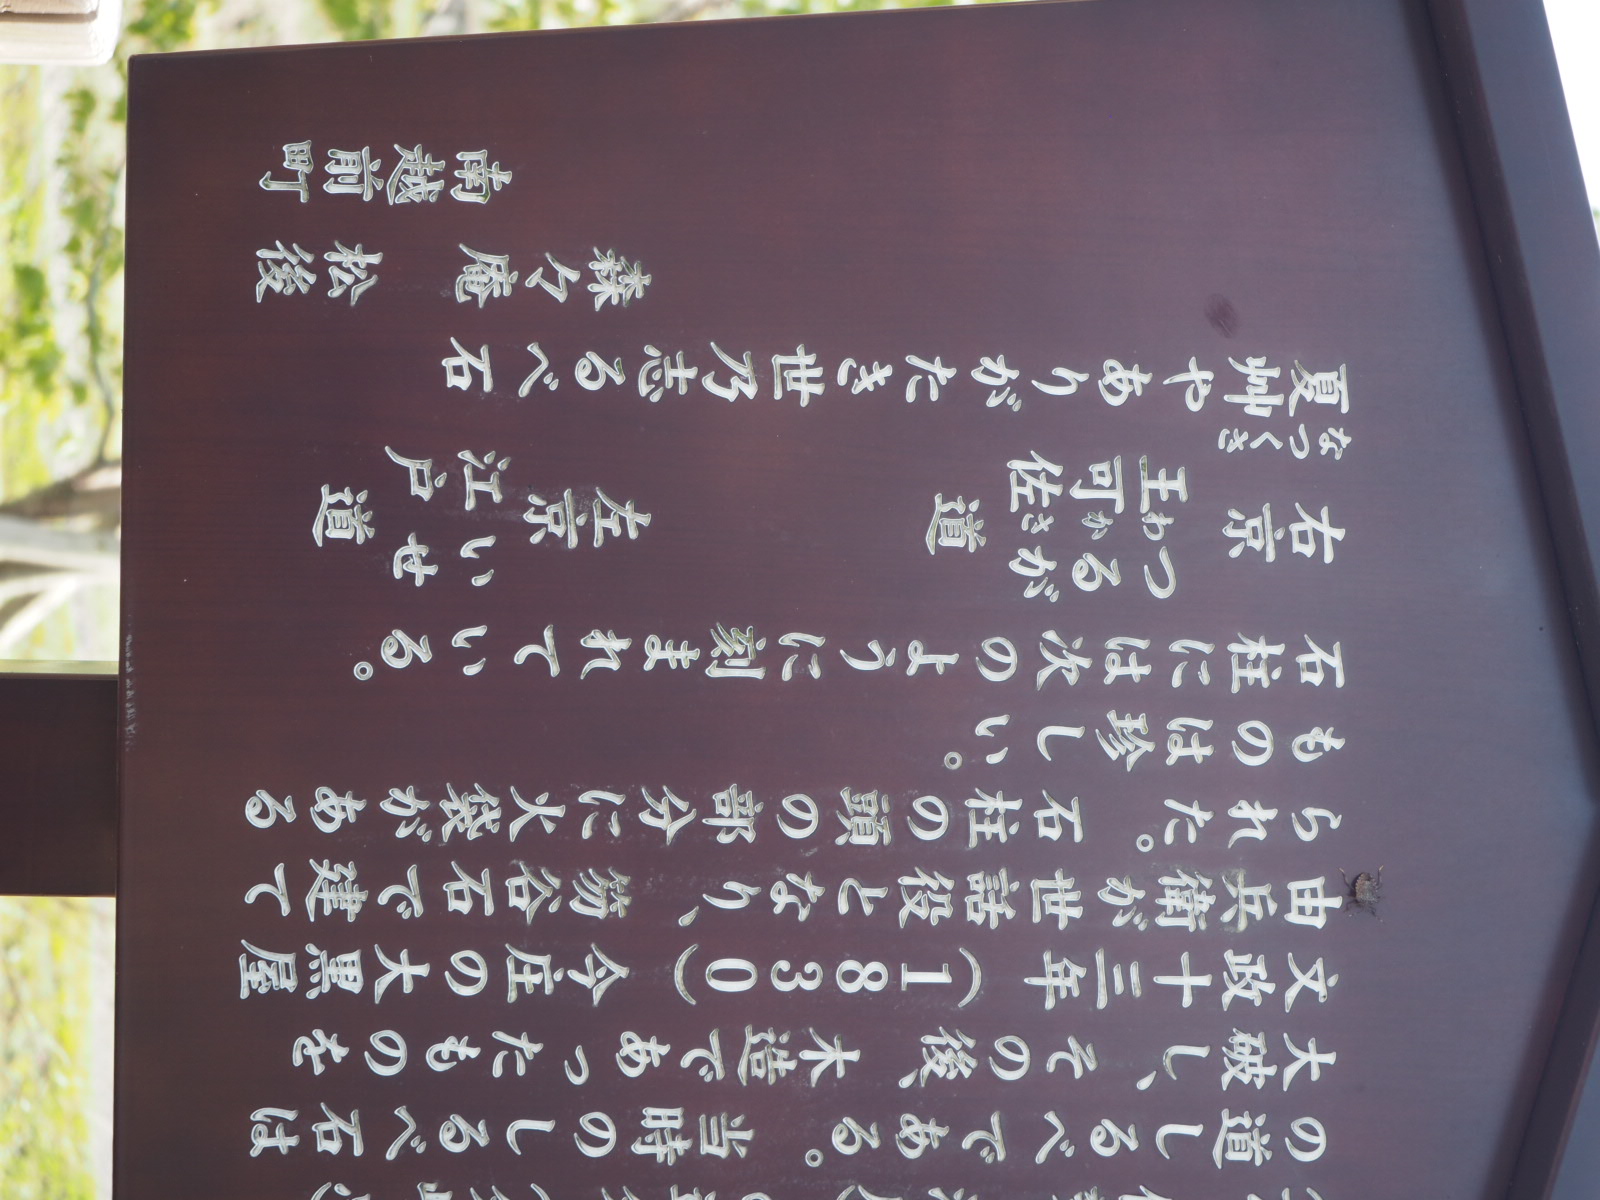 の道しるべである。当時のしるべ石は
大破し、その後、木造であったものを
文政十三年（1830）今庄の大黒屋
由兵衛が世話役となり、笏谷石で建て
られた。石柱の頭の部分に火袋がある
ものは珍しい。
石柱には次のように刻まれている。
右京 つるが 道
王可佐
わかさ
左京 いせ 道
江戸
なつくさ
夏艸やありがたき世乃志るべ石
森々庵 松後
南越前町